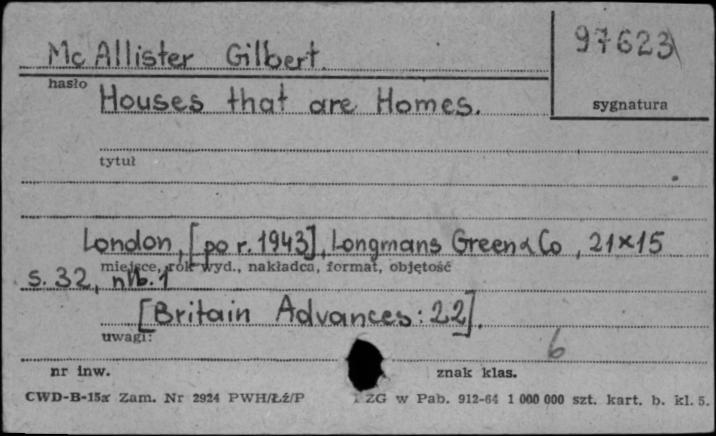 Mc Allister Gilbert.
97623
hasło
sygnatura
Houses that are Homes.
tytuł
London, [po r. 1943], Longmans Green & Co, 21×15
miejsce, rok wyd., nakładca, format, objętość
s. 32, nlb. 1
[Britain Advances: 22].
uwagi:
6
nr inw.
znak klas.
CWD-B-15a Zam. Nr 2924 PWH/Łź/P ZG w Pab. 912-64 1 000 000 szt. kart. b. kl. 5.